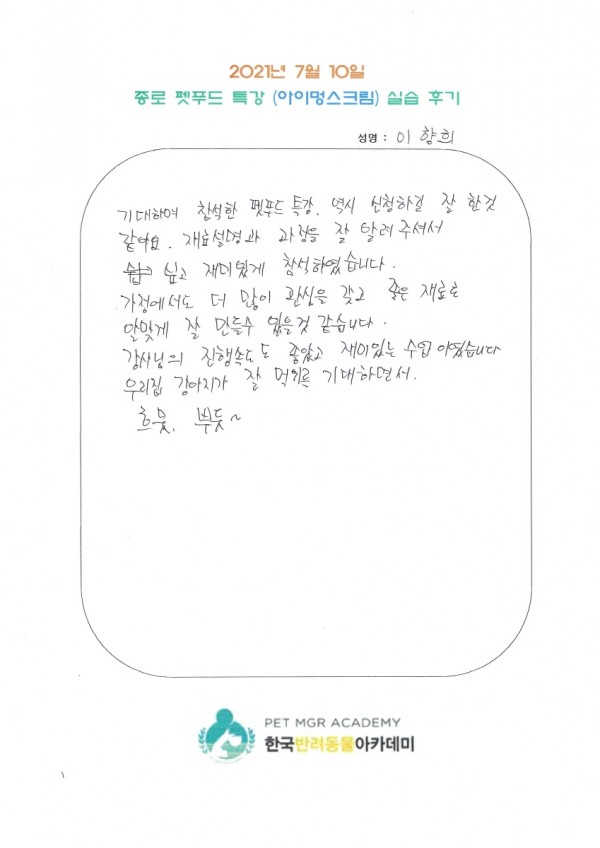 2021년 7월 10일
종로 펫푸드 특강 (아이멍스크림) 실습 후기
성명 : 이향희
기대하여 참석한 펫푸드 특강. 역시 신청하길 잘 한것
같아요. 재료설명과 과정을 잘 알려주셔서
쉽고 재미있게 참석하였습니다.
가정에서도 더 많이 관심을 갖고 좋은 재료로
알맞게 잘 만들수 있을것 같습니다.
강사님의 진행속도도 좋았고 재미있는 수업 이였습니다
우리집 강아지가 잘 먹기를 기대하면서.
흐뭇, 뿌듯~
PET MGR ACADEMY
한국반려동물아카데미